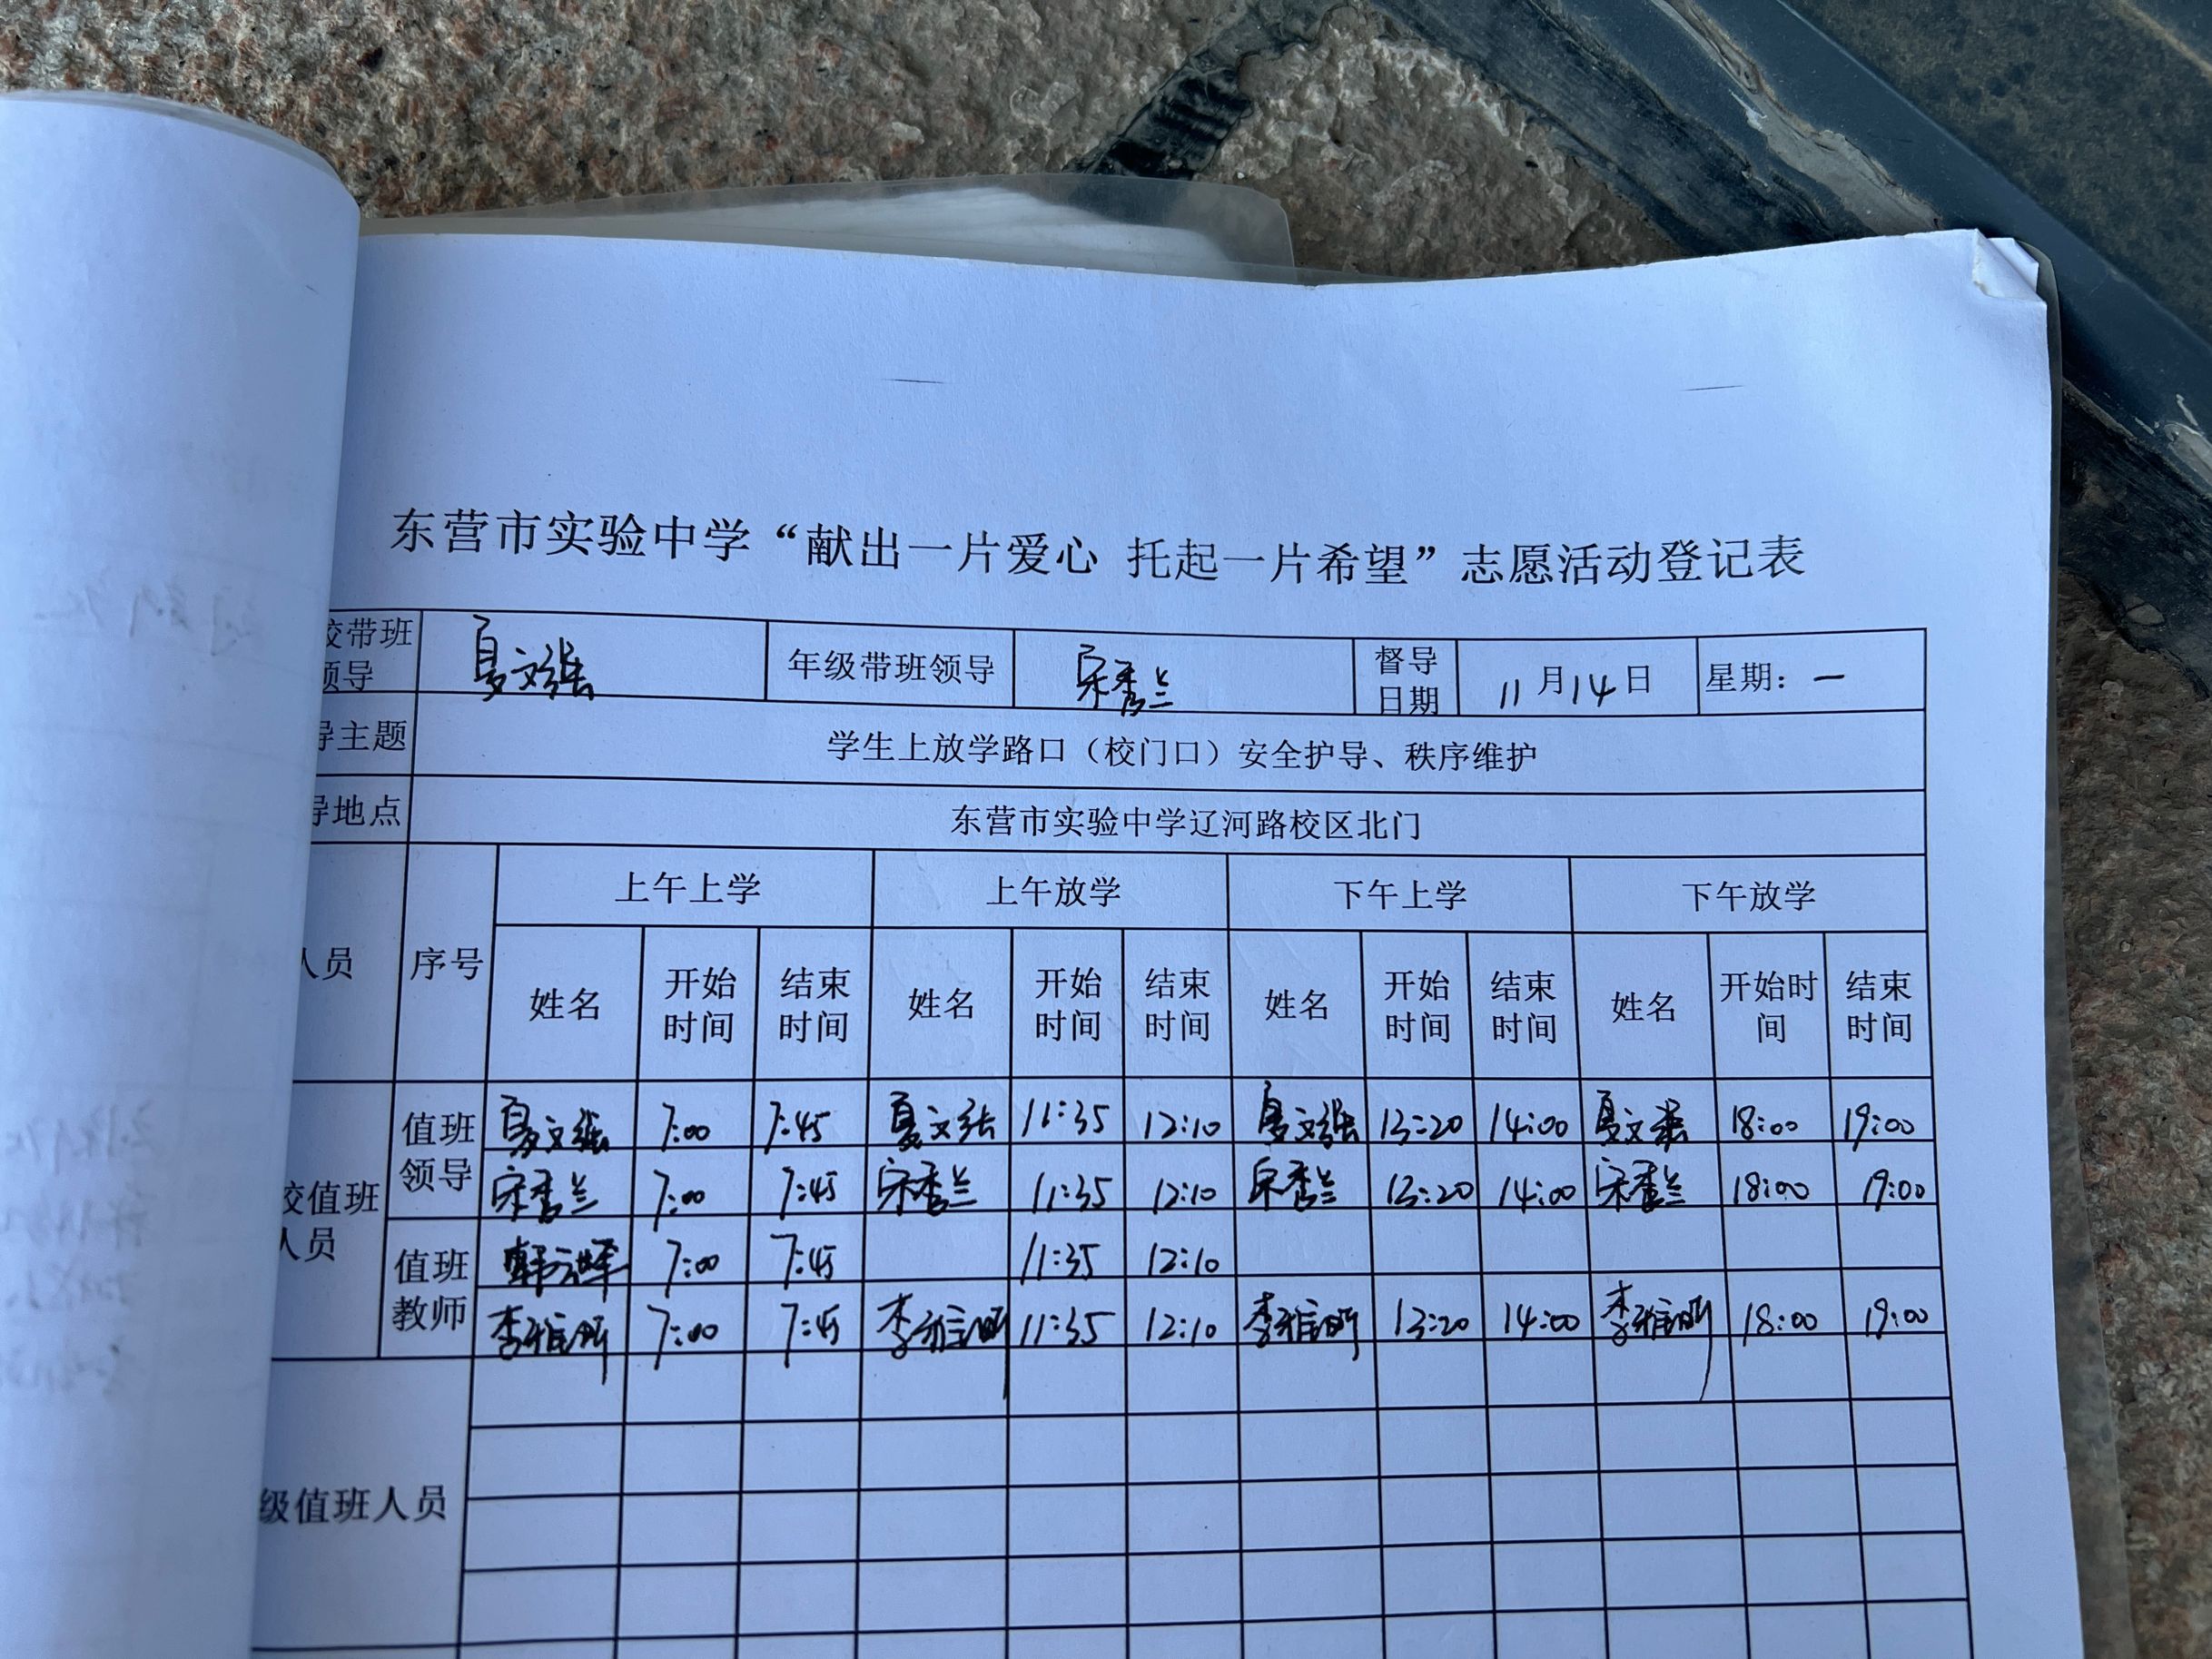 东营市实验中学“献出一片爱心 托起一片希望”志愿活动登记表
校带班领导 夏文强 年级带班领导 宋秀兰 督导日期 11月14日 星期：一
导主题 学生上放学路口（校门口）安全护导、秩序维护
导地点 东营市实验中学辽河路校区北门
人员 序号 上午上学 上午放学 下午上学 下午放学
姓名 开始时间 结束时间 姓名 开始时间 结束时间 姓名 开始时间 结束时间 姓名 开始时间 结束时间
校值班人员 值班领导 夏文强 7:00 7:45 夏文强 11:35 12:10 夏文强 13:20 14:00 夏文强 18:00 19:00
宋秀兰 7:00 7:45 宋秀兰 11:35 12:10 宋秀兰 13:20 14:00 宋秀兰 18:00 19:00
值班教师 7:00 7:45 11:35 12:10
李雅昕 7:00 7:45 李雅昕 11:35 12:10 李雅昕 13:20 14:00 李雅昕 18:00 19:00
级值班人员